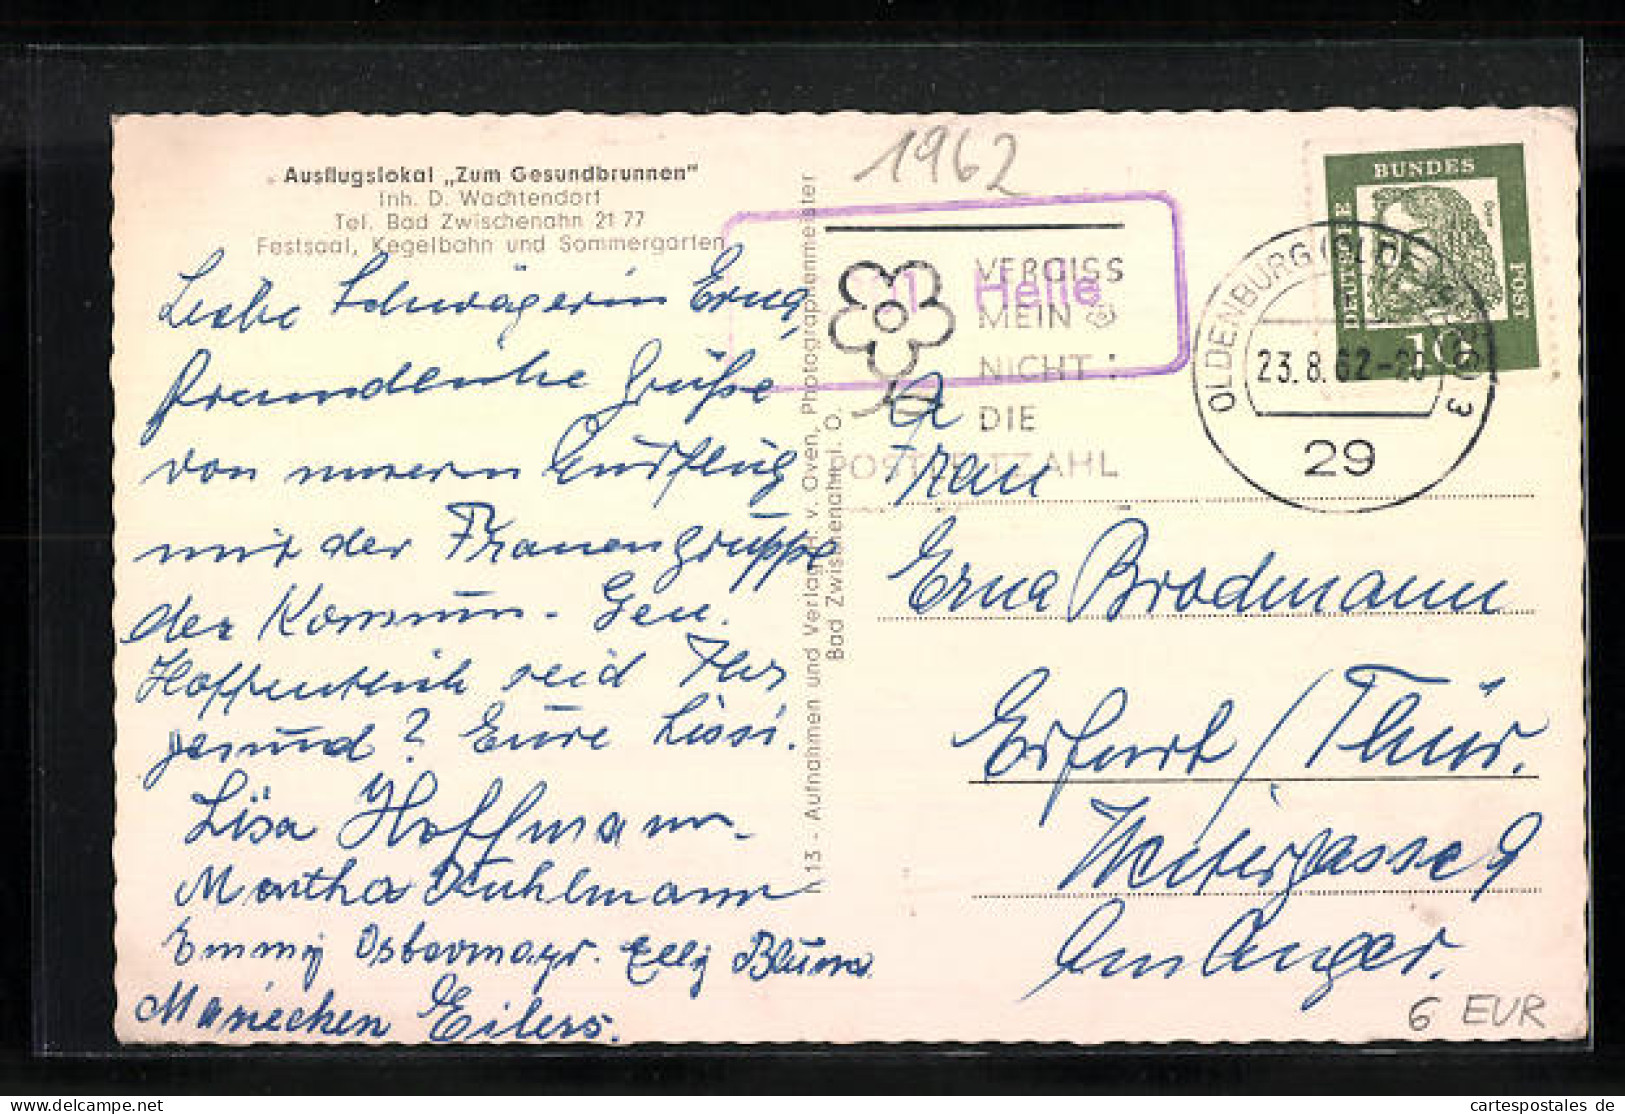 Ausflugslokal „Zum Gesundbrunnen"
Inh. D. Wachtendorf
Tel. Bad Zwischenahn 21 77
Festsaal, Kegelbahn und Sommergarten
Liebe Schwägerin Erna,
freundliche Grüße
von unserem Ausflug
mit der Frauengruppe
der Kommun. Gen.
Hoffentlich seid Ihr
gesund? Eure Lissi.
Lisa Hoffmann
Martha Kuhlmann
Emmy Ostermayr. Elly Blum
Mariechen Eilers.
h 13 - Aufnahmen und Verlag H. v. Oven, Photographenmeister
Bad Zwischenahn i. O.
1962
Helle
VERGISS
MEIN
NICHT:
DIE
POSTLEITZAHL
OLDENBURG (OLDB)
23.8.62-20
29
BUNDES
POST
DEUTSCHE
10
Frau
Erna Brodmann
Erfurt / Thür.
9
Am Anger.
6 EUR
cartespostales de